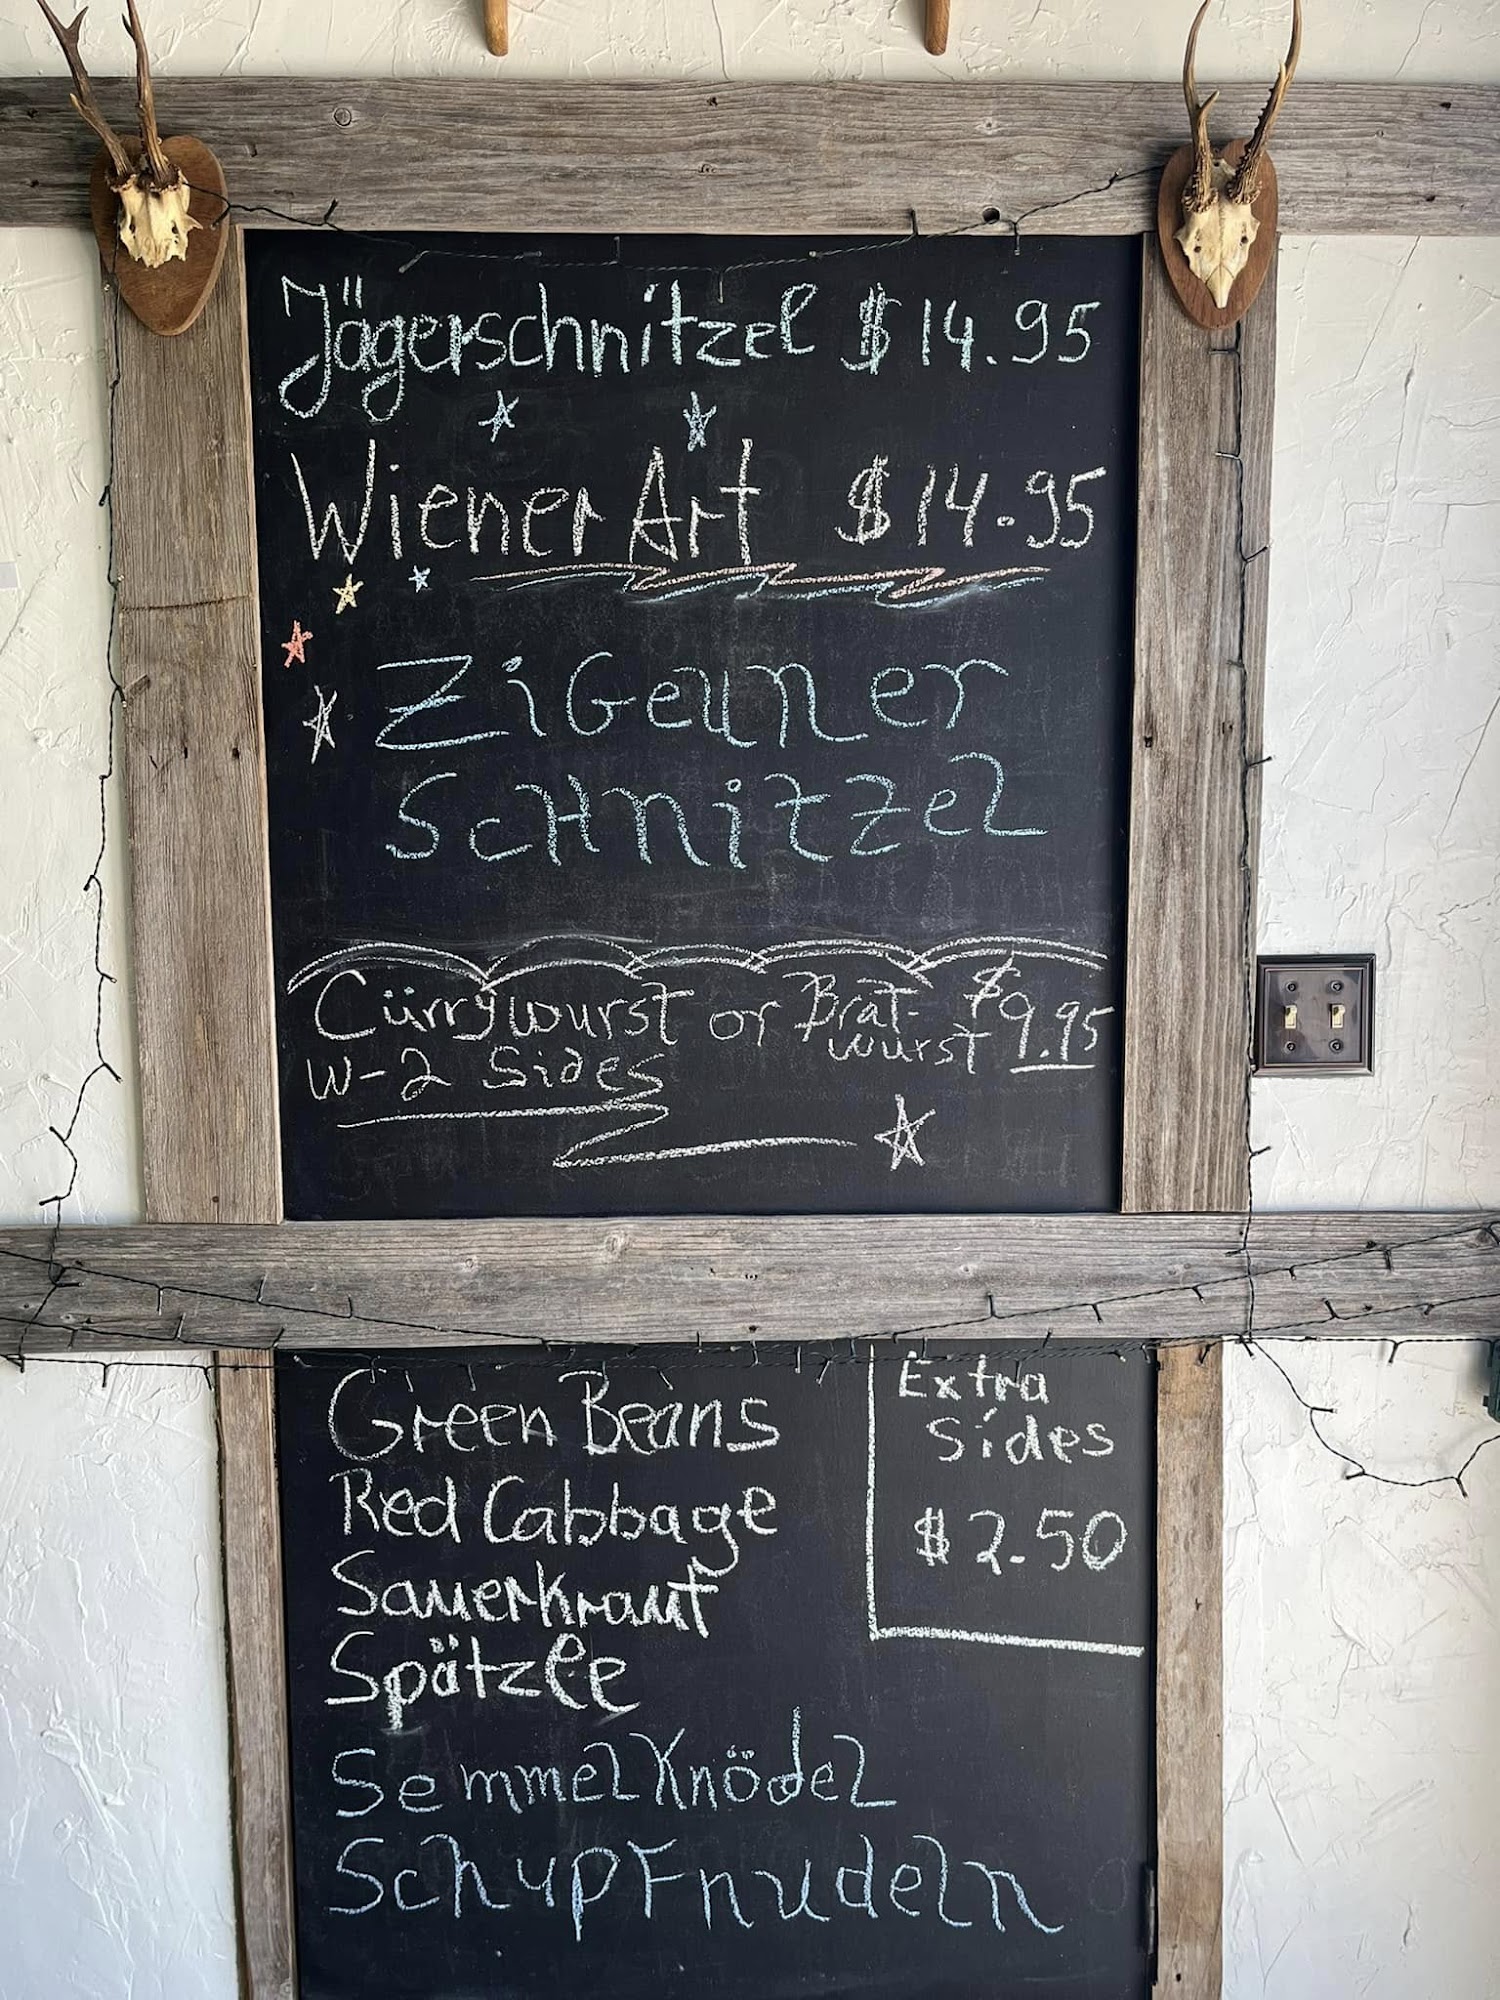 Jägerschnitzel $14.95
Wiener Art $14.95
Zigeuner
Schnitzel
Cürrywurst or Brat-wurst $9.95
W-2 Sides
Green Beans
Red Cabbage
Sauerkraut
Spätzle
Semmelknödel
Schupfnudeln
Extra
Sides
$2.50